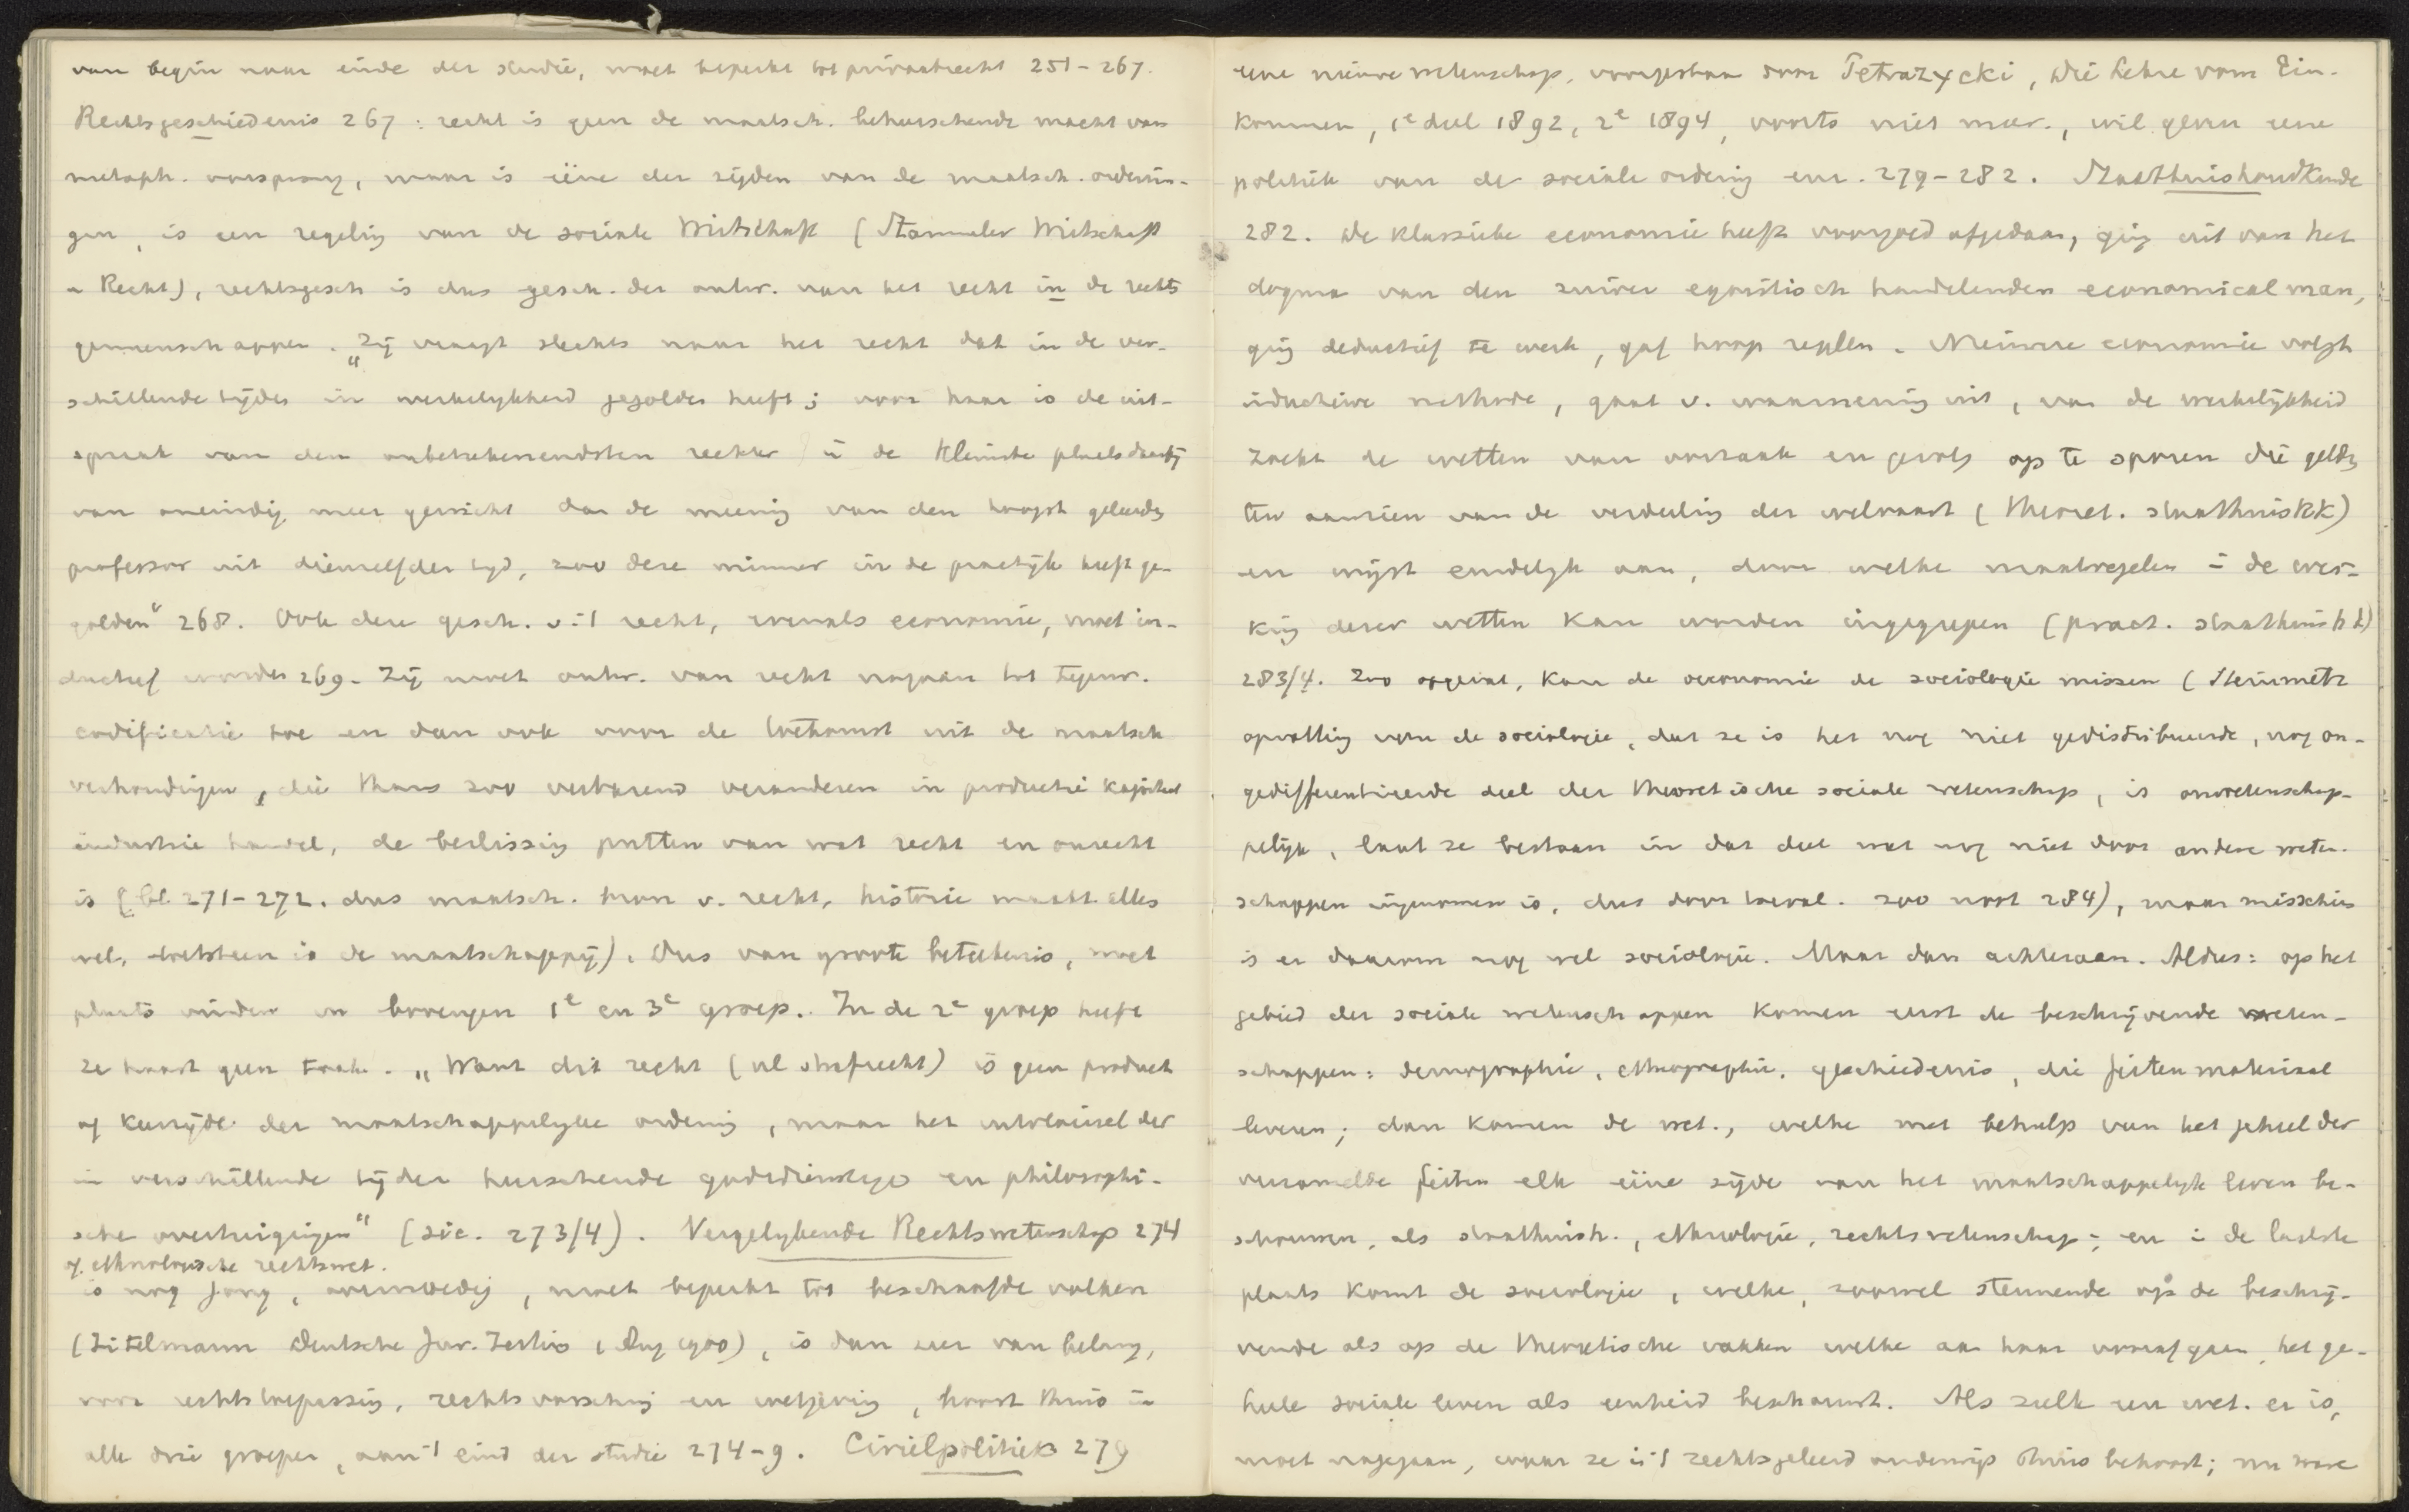 van begin naar einde der studie, moet beperkt tot privaatrecht 251-267.
Rechtsgeschiedenis 267: recht is geen de maatsch. beheerschende macht van
metaph. oorsprong, maar is ééne der zijden van de maatsch. ordenin-
gen, is een regeling van de sociale Wirtschaft (Stammler Wirtschaft
u Recht), rechtsgesch is dus gesch. der ontw. van het recht in de rechts
gemeenschappen. „Zij vraagt slechts naar het recht dat in de ver-
schillende tijden in werkelykheid gegolden heeft; voor haar is de uit-
spraak van den onbeteekenendsten rechter in de kleinste plaats daarbij
van oneindig meer gewicht dan de meening van den hoogst geleerden
professor uit dienzelfden tyd, zoo deze minder in de practijk heeft ge-
golden" 268. Ook deze gesch. v 't recht, evenals economie, moet in-
ductief worden 269. Zij moet ontw. van recht nagaan tot tegenw.
codificatie toe en dan ook voor de toekomst uit de maatsch
verhoudingen, die thans zoo verbazend veranderen in productie kapitaal
industrie handel, de beslissing putten van wat recht en onrecht
is (bl. 271-272. dus maatsch. bron v. recht, historie maakt alles
wel, toetssteen is de maatschappij). Dus van groote beteekenis, moet
plaats vinden in bovengen 1e en 3e groep. In de 2e groep heeft
ze haast geen taak. „Want dit recht (nl strafrecht) is geen product
of keerzijde der maatschappelyke ordening, maar het uitvloeisel der
in verschillende tijden heerschende godsdienstige en philosophi-
sche overtuigingen" (sic. 273/4). Vergelykende Rechtswetenschap 274
of ethnologische rechtswet.
is nog jong, overmoedig, moet beperkt tot beschaafde volken
(Zitelmann Deutsche Jur. Zeitung, Aug 1900), is dan zeer van belang,
voor rechtstoepassing, rechtsvorsching en wetgeving, hoort thuis in
alle drie groepen, aan 't eind der studie 274-9. Civielpolitiek 279
eene nieuwe wetenschap, voorgestaan door Petrazycki, Die Lehre vom Ein-
kommen, 1e deel 1892, 2e 1894, voorts niet meer., wil geven eene
politiek van de sociale ordening enz. 279-282. Staathuishoudkunde
282. De klassieke economie heeft voorgoed afgedaan, ging uit van het
dogma van den zuiver egoistisch handelenden economical man,
ging deductief te werk, gaf hoop regelen. Nieuwere economie volgt
inductieve methode, gaat v. waarneming uit, van de werkelijkheid
zoekt de wetten van oorzaak en gevolg op te sporen die gelden
ten aanzien van de verdeeling der welvaart (theoret. staathuishk)
en wijst eindelyk aan, door welke maatregelen in de wer-
king dezer wetten kan worden ingegrepen (pract. staathuishk)
283/4. Zoo opgevat, kan de oeconomie de sociologie missen (Steinmetz
opvatting van de sociologie, dat ze is het nog niet gedistribueerde, nog on-
gedifferentieerde deel der theoretische sociale wetenschap, is onwetenschap-
pelijk, laat ze bestaan in dat deel wat nog niet door andere weten-
schappen ingenomen is, dus door toeval. zoo noot 284), maar misschien
is er daarom nog wel sociologie. Maar dan achteraan. Aldus: op het
gebied der sociale wetenschappen komen eerst de beschrijvende weten-
schappen: demographie, ethnographie, geschiedenis, die feitenmateriaal
leveren; dan komen de wet., welke met behulp van het geheel der
verzamelde feiten elk ééne zijde van het maatschappelyk leven be-
schouwen, als staathuish., ethnologie, rechtswetenschap; en in de laatste
plaats komt de sociologie, welke, zoowel steunende op de beschrij-
vende als op de theoretische vakken welke aan haar vooraf gaan, het ge-
heele sociale leven als eenheid beschouwt. Als zulk een wet. er is,
moet nagegaan, waar ze in 't rechtsgeleerd onderwijs thuis behoort; nu ware